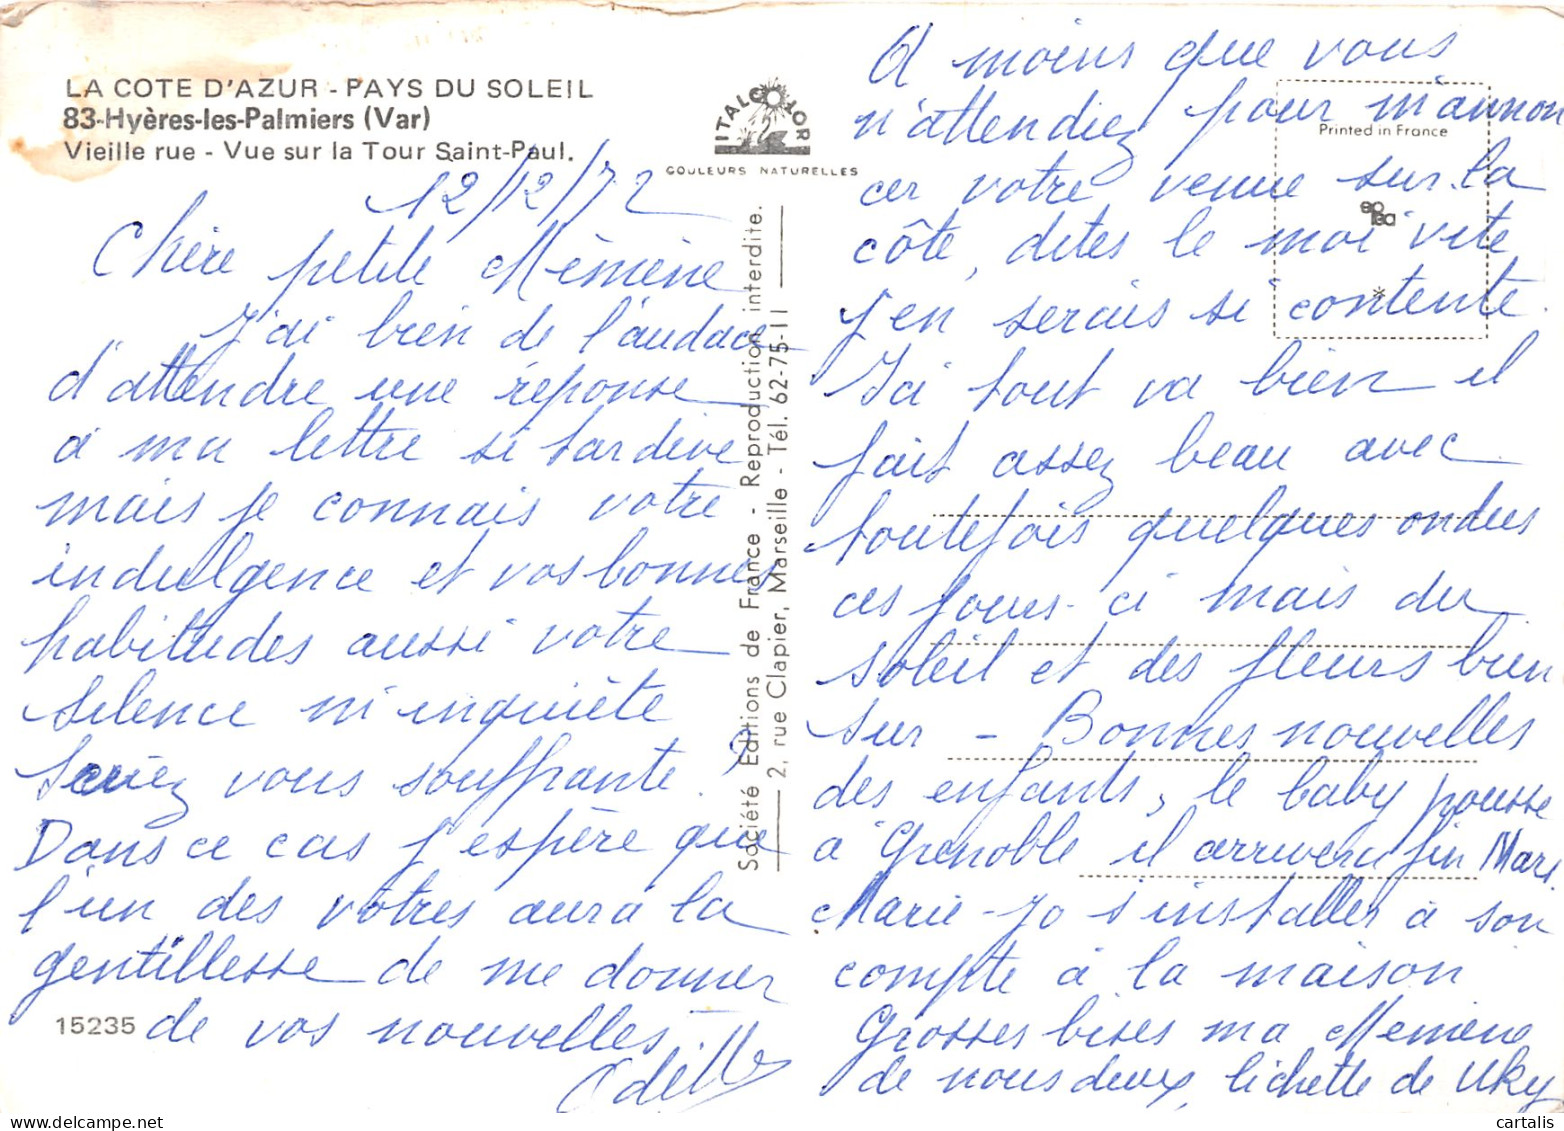 LA COTE D'AZUR - PAYS DU SOLEIL
83-Hyères-les-Palmiers (Var)
Vieille rue - Vue sur la Tour Saint-Paul.
ITALCOLOR
COULEURS NATURELLES
12/12/72
Chère petite Mémène
J'ai bien de l'audace
d'attendre une réponse
à ma lettre si tardive
mais je connais votre
indulgence et vos bonnes
habitudes aussi votre
silence m'inquiète
Seriez vous souffrante ?
Dans ce cas j'espère que
l'un des vôtres aura la
gentillesse de me donner
de vos nouvelles
Odille
15235
Société Editions de France - Reproduction interdite.
2, rue Clapier, Marseille - Tél. 62-75-11
A moins que vous
n'attendiez pour m'annon
cer votre venue sur la
côte, dites le moi vite
j'en serais si contente.
Ici tout va bien il
fait assez beau avec
toutefois quelques ondées
ces jours-ci mais du
soleil et des fleurs bien
sur - Bonnes nouvelles
des enfants, le baby pousse
à Grenoble il arrivera fin Mars
Marie-Jo s'installer à son
compte à la maison
Grosses bises ma Mémène
de nous deux, lichette de Uky
Printed in France
cartalis